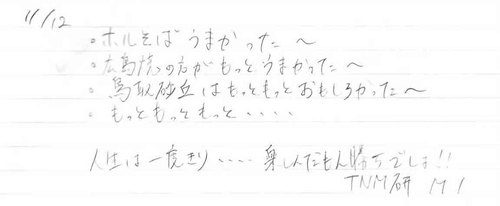 11/12
・ホルそばうまかった〜
・広島焼の方がもっとうまかった〜
・鳥取砂丘はもっともっとおもしろかった〜
・もっともっともっと・・・・
人生は一度きり・・・・楽しんだもん勝ちでしょ!!
TNM研 M1